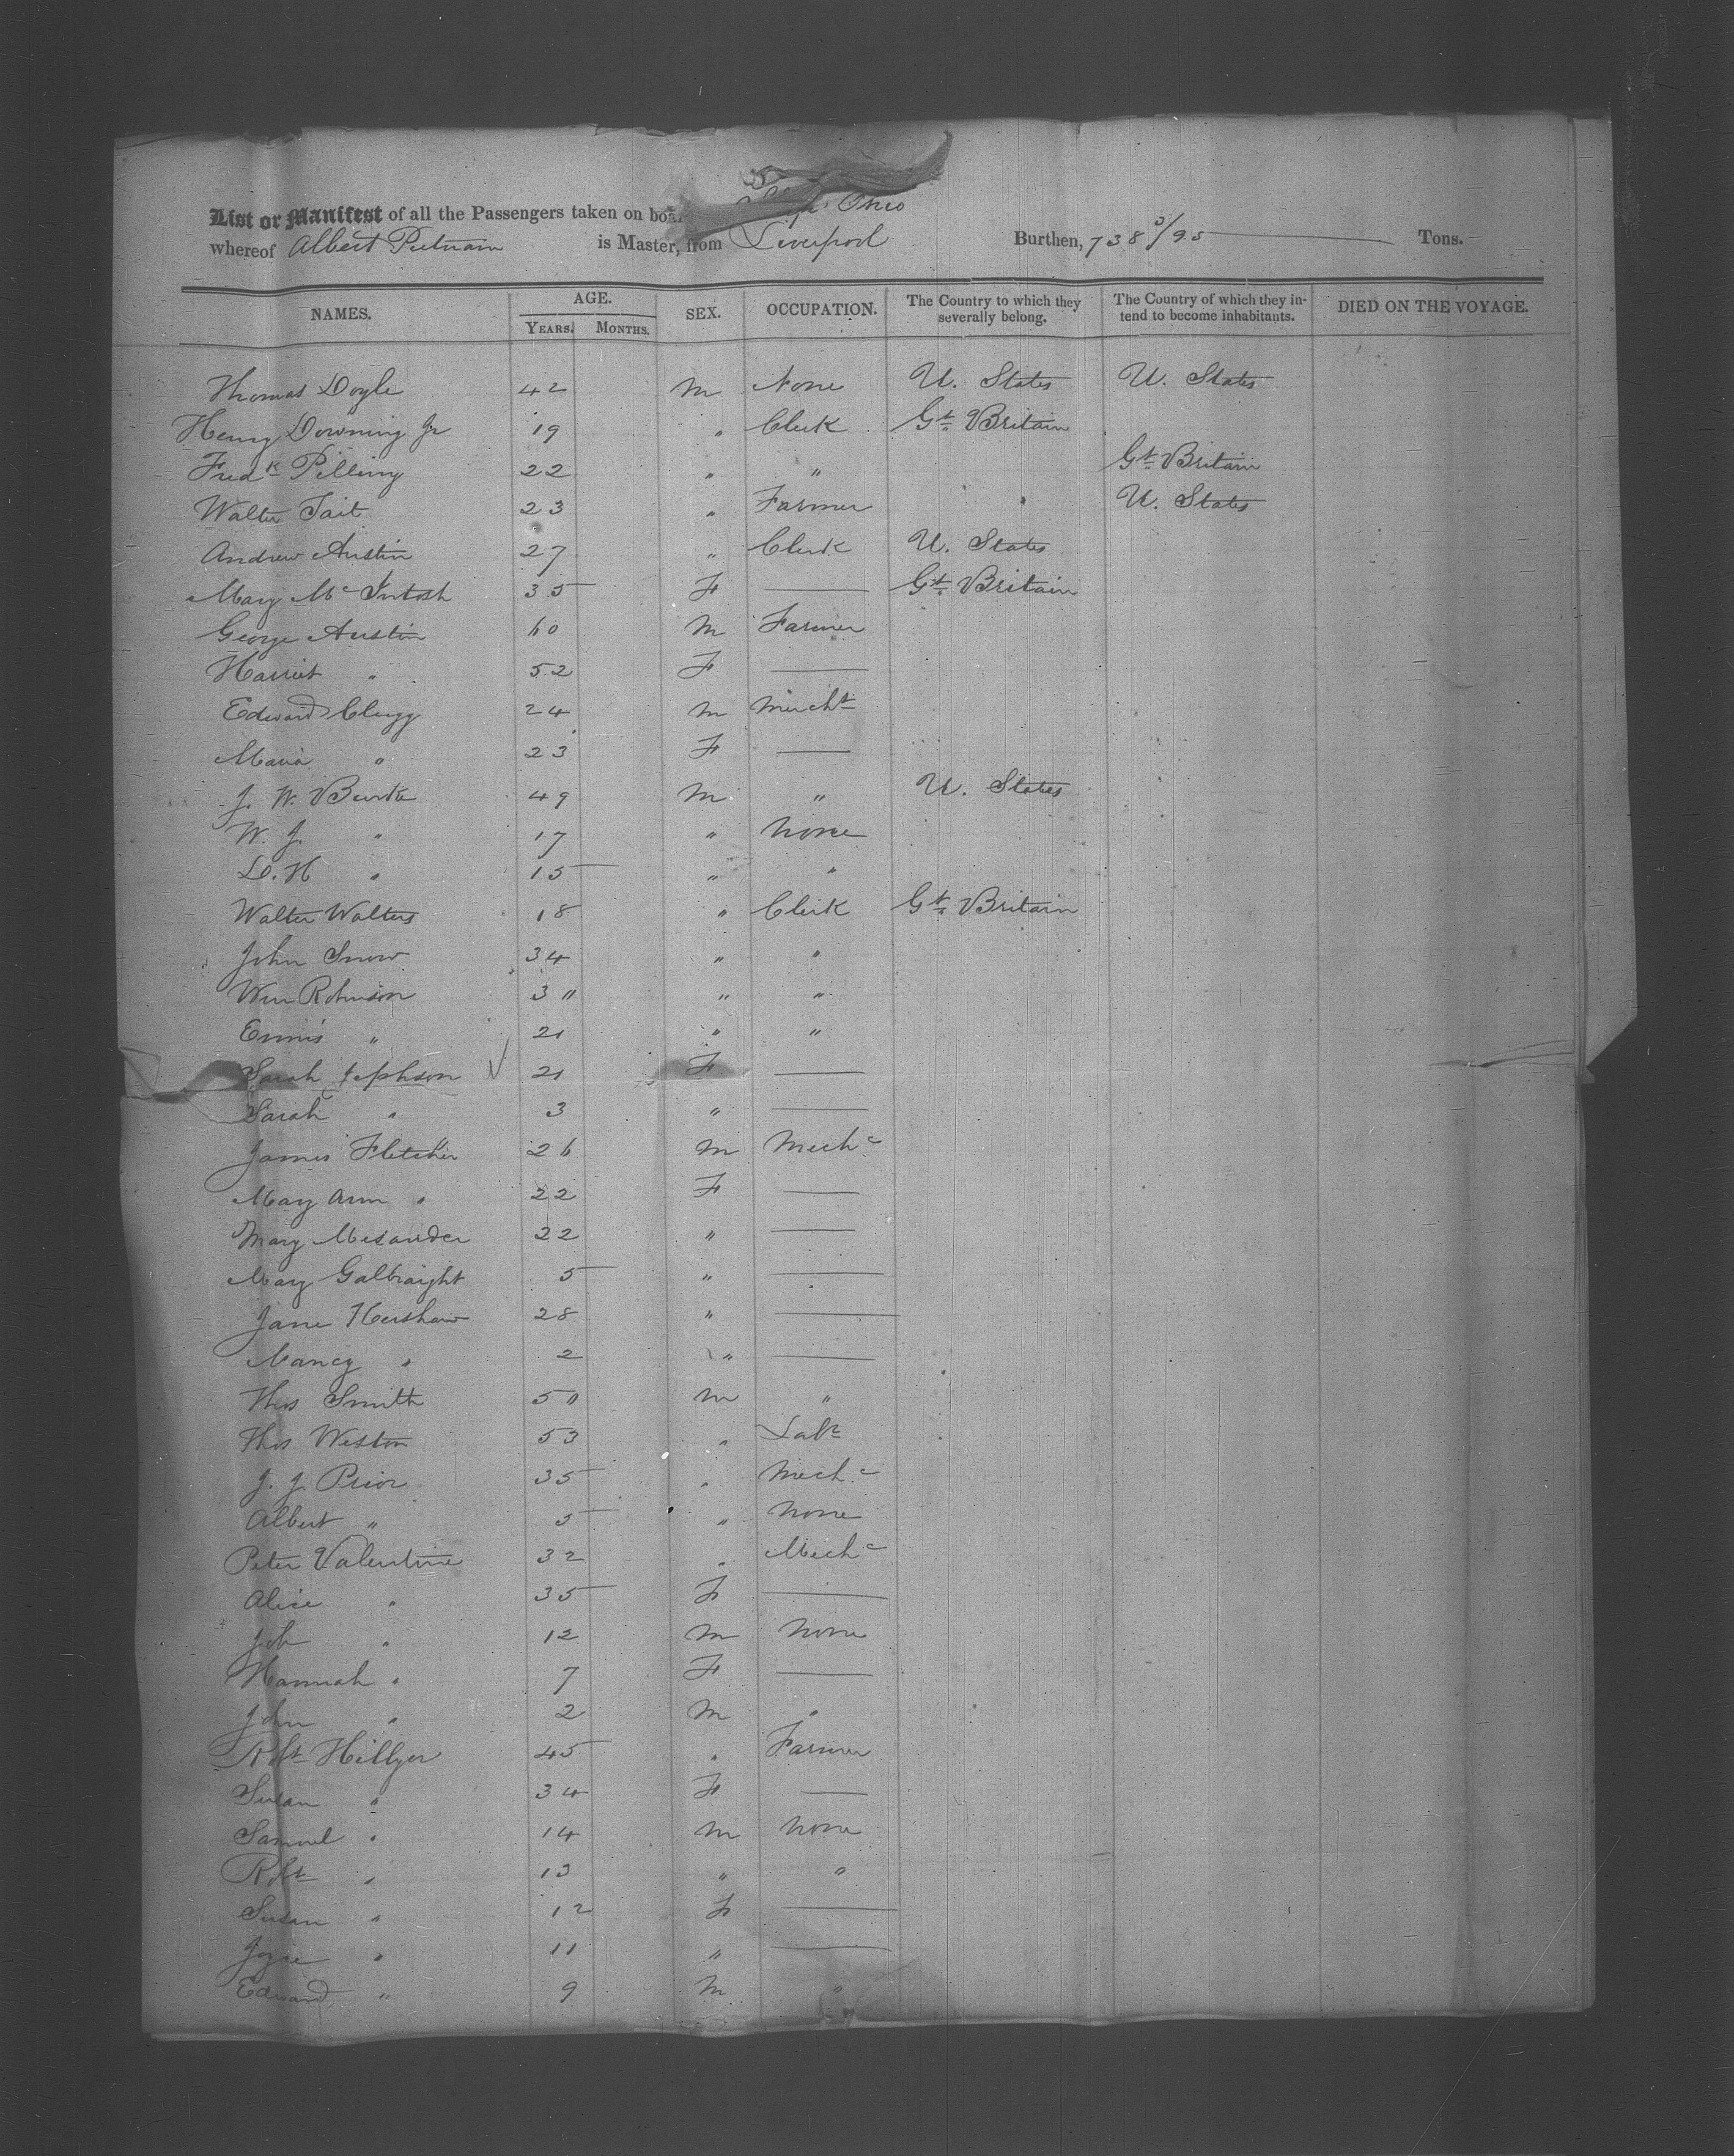 List or Manifest of all the Passengers taken on boar Ship Ohio
whereof Albert Putnam is Master, from Liverpool Burthen, 738 /95 Tons.
NAMES. AGE. SEX. OCCUPATION. The Country to which they severally belong. The Country of which they intend to become inhabitants. DIED ON THE VOYAGE.
YEARS. MONTHS.
Thomas Doyle 42 M None U. States U. States
Henry Downing Jr 19 " Clerk Gt Britain
Fredk Pilling 22 " " Gt Britain
Walter Tait 23 " Farmer U. States
Andrew Austin 27 " Clerk U. States
Mary McIntosh 35 F — Gt Britain
George Austin 60 M Farmer
Harriet " 52 F —
Edward Clegg 24 M Mercht
Maria " 23 F —
J. W. Burke 49 M " U. States
W. J. " 17 " None
D. H " 15 " "
Walter Walters 18 " Clerk Gt Britain
John Snow 34 " "
Wm Robinson 30 " "
Ennis " 21 " "
Sarah Jephson √ 21 F —
Sarah " 3 " —
James Fletcher 26 M Mechc
Mary Ann " 22 F —
Mary 22 " —
Mary Galbraight 5 " —
Jane Kershaw 28 " —
Nancy " 2 " —
Thos Smith 50 M "
Thos Weston 53 " Labr
J. J. Prior 35 " Mechc
Albert " 5 " None
Peter Valentine 32 " Mechc
Alice " 35 F —
Job " 12 M None
Hannah " 7 F —
John " 2 M "
Robt Hillyer 45 " Farmer
Susan " 34 F —
Samuel " 14 M None
Robt " 13 " "
Susan " 12 F —
" 11 " —
Edward " 9 M "